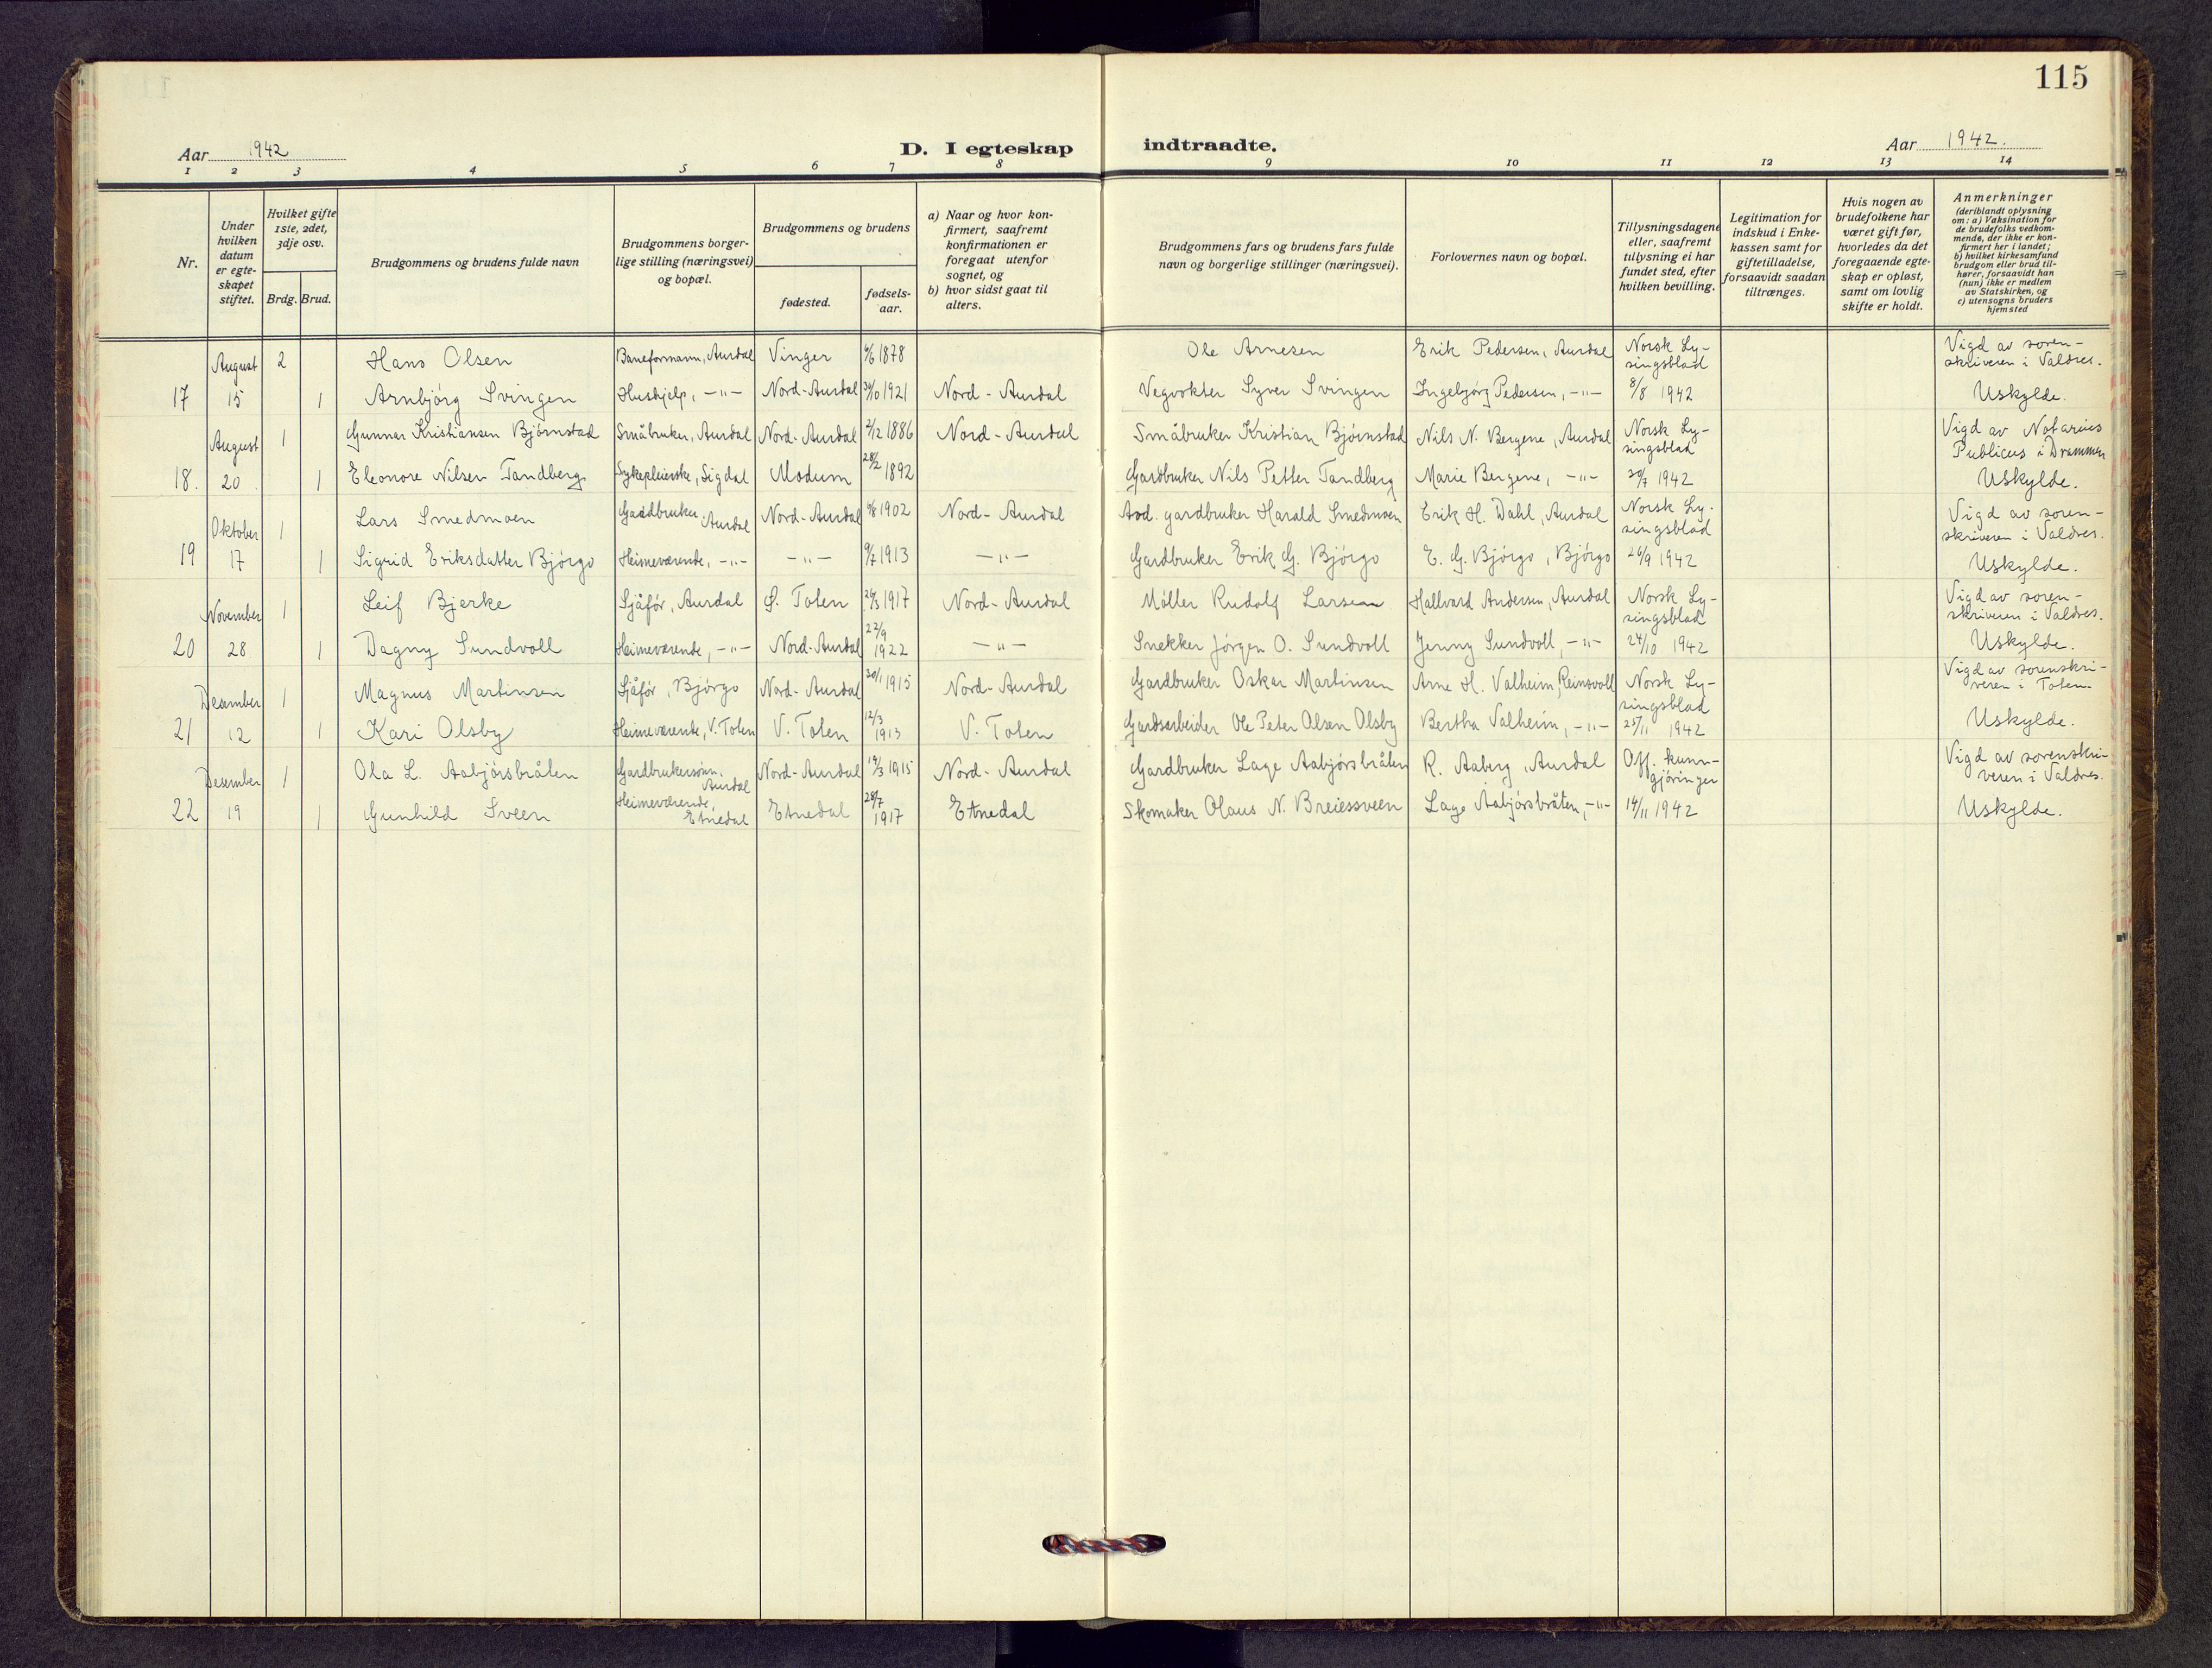 115
Aar 1942
D. I egteskap indtraadte.
Aar 1942.
1 2 3 4 5 6 7 8 9 10 11 12 13 14
Nr.
Under hvilken datum er egteskapet stiftet.
Hvilket gifte 1ste, 2det, 3dje osv.
Brdg. Brud.
Brudgommens og brudens fulde navn
Brudgommens borgerlige stilling (næringsvei) og bopæl.
Brudgommens og brudens
fødested.
fødselsaar.
a) Naar og hvor konfirmert, saafremt konfirmationen er foregaat utenfor sognet, og
b) hvor sidst gaat til alters.
Brudgommens fars og brudens fars fulde navn og borgerlige stillinger (næringsvei).
Forlovernes navn og bopæl.
Tillysningsdagene eller, saafremt tillysning ei har fundet sted, efter hvilken bevilling.
Legitimation for indskud i Enkekassen samt for giftetilladelse, forsaavidt saadan tiltrænges.
Hvis nogen av brudefolkene har været gift før, hvorledes da det foregaaende egteskap er opløst, samt om lovlig skifte er holdt.
Anmerkninger (deriblandt oplysning om: a) Vaksination for de brudefolks vedkommende, der ikke er konfirmert her i landet; b) hvilket kirkesamfund brudgom eller brud tilhører, forsaavidt han (hun) ikke er medlem av Statskirken, og c) utensogns bruders hjemsted
August 2 Hans Olsen Baneformann, Aurdal Vinger 6/6 1878 Ole Arnesen Erik Pedersen, Aurdal Norsk Lysingsblad Vigd av sorenskriveren i Valdres.
17 15 1 Arnbjörg Svingen Hushjelp, -"- Nord-Aurdal 30/10 1921 Nord-Aurdal Vegvokter Syver Svingen Ingebjørg Pedersen, -"- 8/8 1942 Uskylde.
August 1 Gunnar Kristiansen Bjørnstad Småbruker, Aurdal Nord-Aurdal 2/12 1886 Nord-Aurdal Småbruker Kristian Bjørnstad Nils N. Bergene, Aurdal Norsk Lysingsblad Vigd av Notarius Publicus i Drammen
18. 20 1 Eleonore Nilsen Tandberg Sykepleierske, Sigdal Modum 28/2 1892 Gardbruker Nils Petter Tandberg Marie Bergene, -"- 20/7 1942 Uskylde.
Oktober 1 Lars Smedmoen Gardbruker, Aurdal Nord-Aurdal 6/8 1902 Nord-Aurdal Avd. gardbruker Harald Smedmoen Erik H. Dahl, Aurdal Norsk Lysingsblad Vigd av sorenskriveren i Valdres.
19 17 1 Sigrid Eriksdatter Bjørgo Heimeværende, -"- -"- 9/7 1913 -"- Gardbruker Erik G. Bjørgo E. G. Bjørgo, Bjørgo 26/9 1942 Uskylde.
November 1 Leif Bjerke Sjåfør, Aurdal Ø. Toten 26/3 1917 Nord-Aurdal Møller Rudolf Larsen Hallvard Andersen, Aurdal Norsk Lysingsblad Vigd av sorenskriveren i Valdres.
20 28 1 Dagny Sundvoll Heimeværende, -"- Nord-Aurdal 22/9 1922 -"- Snekker Jörgen O. Sundvoll Jenny Sundvoll, -"- 24/10 1942 Uskylde.
Desember 1 Magnus Martinsen Sjåfør, Bjørgo Nord-Aurdal 20/1 1915 Nord-Aurdal Gardbruker Oskar Martinsen Arne H. Valheim, Reinsvoll Norsk Lysingsblad Vigd av sorenskriveren i Toten
21 12 1 Kari Olsby Heimeværende, V. Toten V. Toten 12/3 1913 V. Toten Gardsarbeider Ole Peter Olsen Olsby Bertha Valheim, -"- 25/11 1942 Uskylde.
Desember 1 Ola L. Aabjørsbråten Gardbrukersønn, Aurdal Nord-Aurdal 19/3 1915 Nord-Aurdal Gardbruker Lage Aabjørsbråten R. Aaberg, Aurdal Off. kunngjøringer Vigd av sorenskriveren i Valdres.
22 19 1 Gunhild Sveen Heimeværende, Etnedal Etnedal 28/7 1917 Etnedal Skomaker Olaus N. Breiessveen Lage Aabjørsbråten, -"- 14/11 1942 Uskylde.